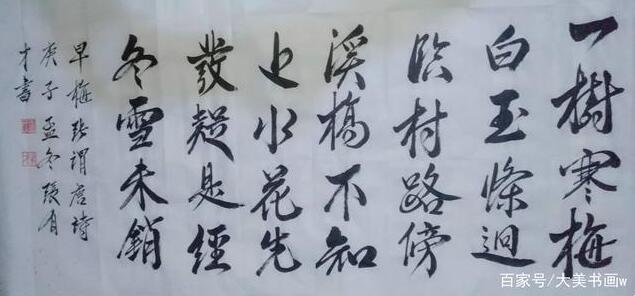 一樹寒梅
白玉條迥
臨村路傍
溪橋不知
近水花先
發疑是經
冬雪未銷
早梅張謂唐詩
庚子孟冬張有
才書
百家号/大美书画w